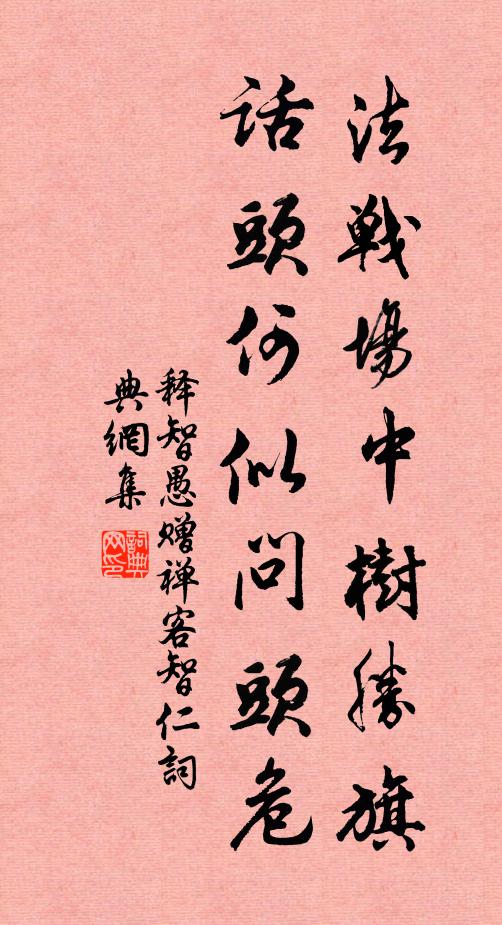 法戰場中樹勝旗
话頭何似問頭危
释智愚赠禅客智仁詞
典網集
詞典网印